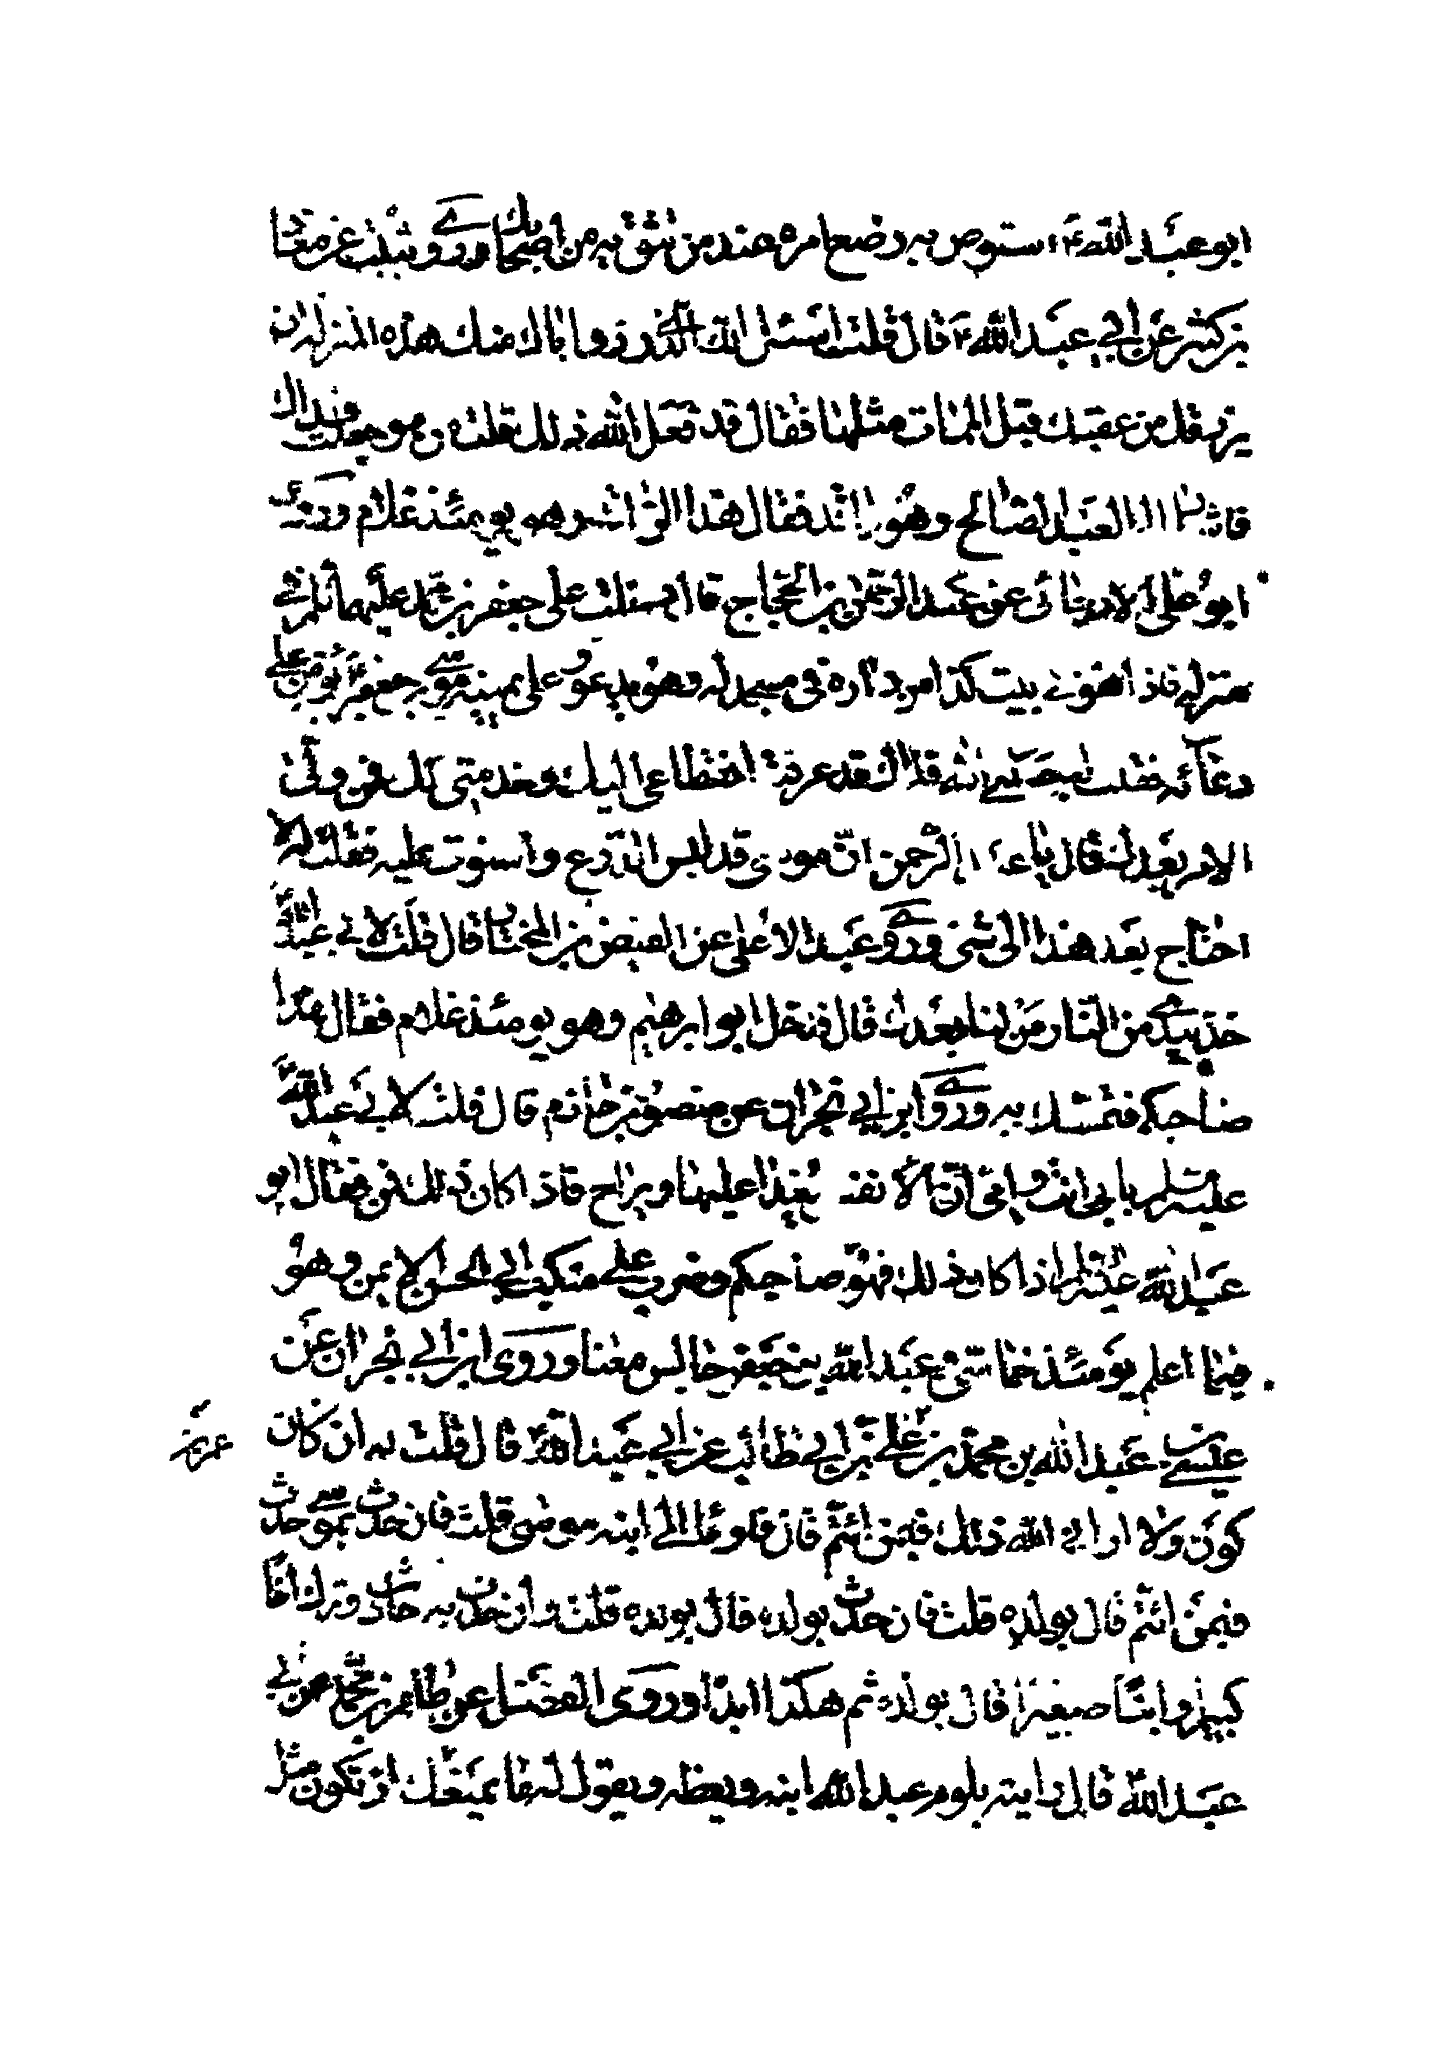 ابو عبد الله ع استوص به وضع امره عند من تثق به من اصحابك وروى ثبيت عن معاذ
بن كثير عن ابي عبد الله ع قال قلت اسئل الله الذي رزق اباك منك هذه المنزلة ان
يرزقك من عقبك قبل الممات مثلها فقال قد فعل الله ذلك قلت من هو جعلت فداك
فاشار الى العبد الصالح وهو راقد فقال هذا الراقد وهو يومئذ غلام وروى
ابو علي الارجائي عن عبد الرحمن بن الحجاج قال سئلت على جعفر بن محمد عليهما السلم في
منزله فاذا هو في بيت كذا من داره في مسجد له وهو يدعو وعلى يمينه موسى بن جعفر ع يؤمن على
دعائه فقلت له جعلني الله فداك قد عرفت انقطاعي اليك وخدمتي لك فمن ولي
الامر بعدك قال يا عبد الرحمن ان موسى قد لبس الدرع واستوت عليه فقلت له لا
احتاج بعد هذا الى شئ وروى عبد الاعلى عن الفيض بن المختار قال قلت لابي عبد الله ع
خذ بيدي من النار من لنا بعدك قال فدخل ابو ابرهيم وهو يومئذ غلام فقال هذا
صاحبكم فتمسك به وروى ابن ابي نجران عن منصور بن حازم قال قلت لابي عبد الله
عليه السلم بابي انت وامي ان الانفس يغدا عليها ويراح فاذا كان ذلك فمن فقال ابو
عبد الله عليه السلم اذا كان ذلك فهو صاحبكم وضرب على منكب ابي الحسن الايمن وهو
فيما اعلم يومئذ خماسي وعبد الله بن جعفر جالس معنا وروى ابن ابي نجران عن
عيسى بن عبد الله بن محمد بن علي بن ابي طالب عن ابي عبد الله ع قال قلت له ان كان
عمر بن
كون ولا اراني الله ذلك فبمن ائتم قال فاومأ الى ابنه موسى قلت فان حدث بموسى حدث
فبمن ائتم قال بولده قلت فان حدث بولده قال بولده قلت وان حدث به حادث وترك اخا
كبيرا وابنا صغيرا قال بولده ثم هكذا ابدا وروى الفضل عن طاهر بن محمد عن ابي
عبد الله قال رايته يلوم عبد الله ابنه ويعظه ويقول له ما يمنعك ان تكون مثل